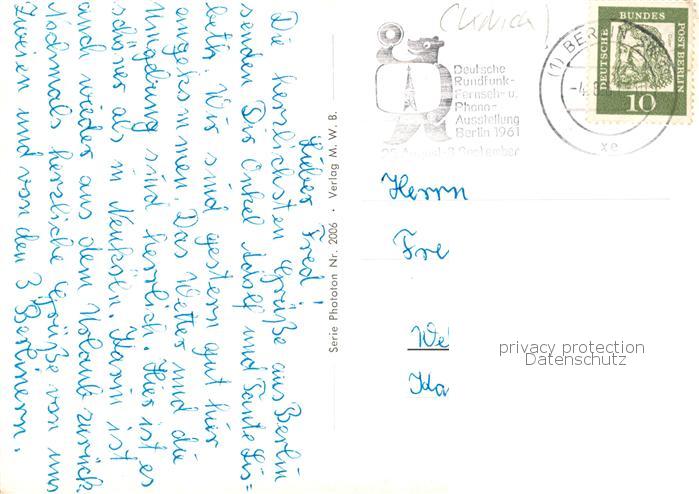 Lieber Fred!
Die herzlichsten Grüße aus Berlin
senden Dir Onkel Adolf und Tante Lis=
beth. Wir sind gestern gut hier
angekommen. Das Wetter und die
Umgebung sind herrlich. Hier ist es
schöner als in Neuköln. Karin ist
auch wieder aus dem Urlaub zurück.
Nochmals herzliche Grüße von uns
zweien und von den 3 Berlinern.
Serie Phototon Nr. 2006 · Verlag M. W. B.
Deutsche
Rundfunk-
Fernseh- u.
Phono-
Ausstellung
Berlin 1961
25. August-3. September
(1) BERLIN
-4.8
xe
DEUTSCHE BUNDES POST BERLIN
10
Herrn
Fre
We
Ida
privacy protection
Datenschutz